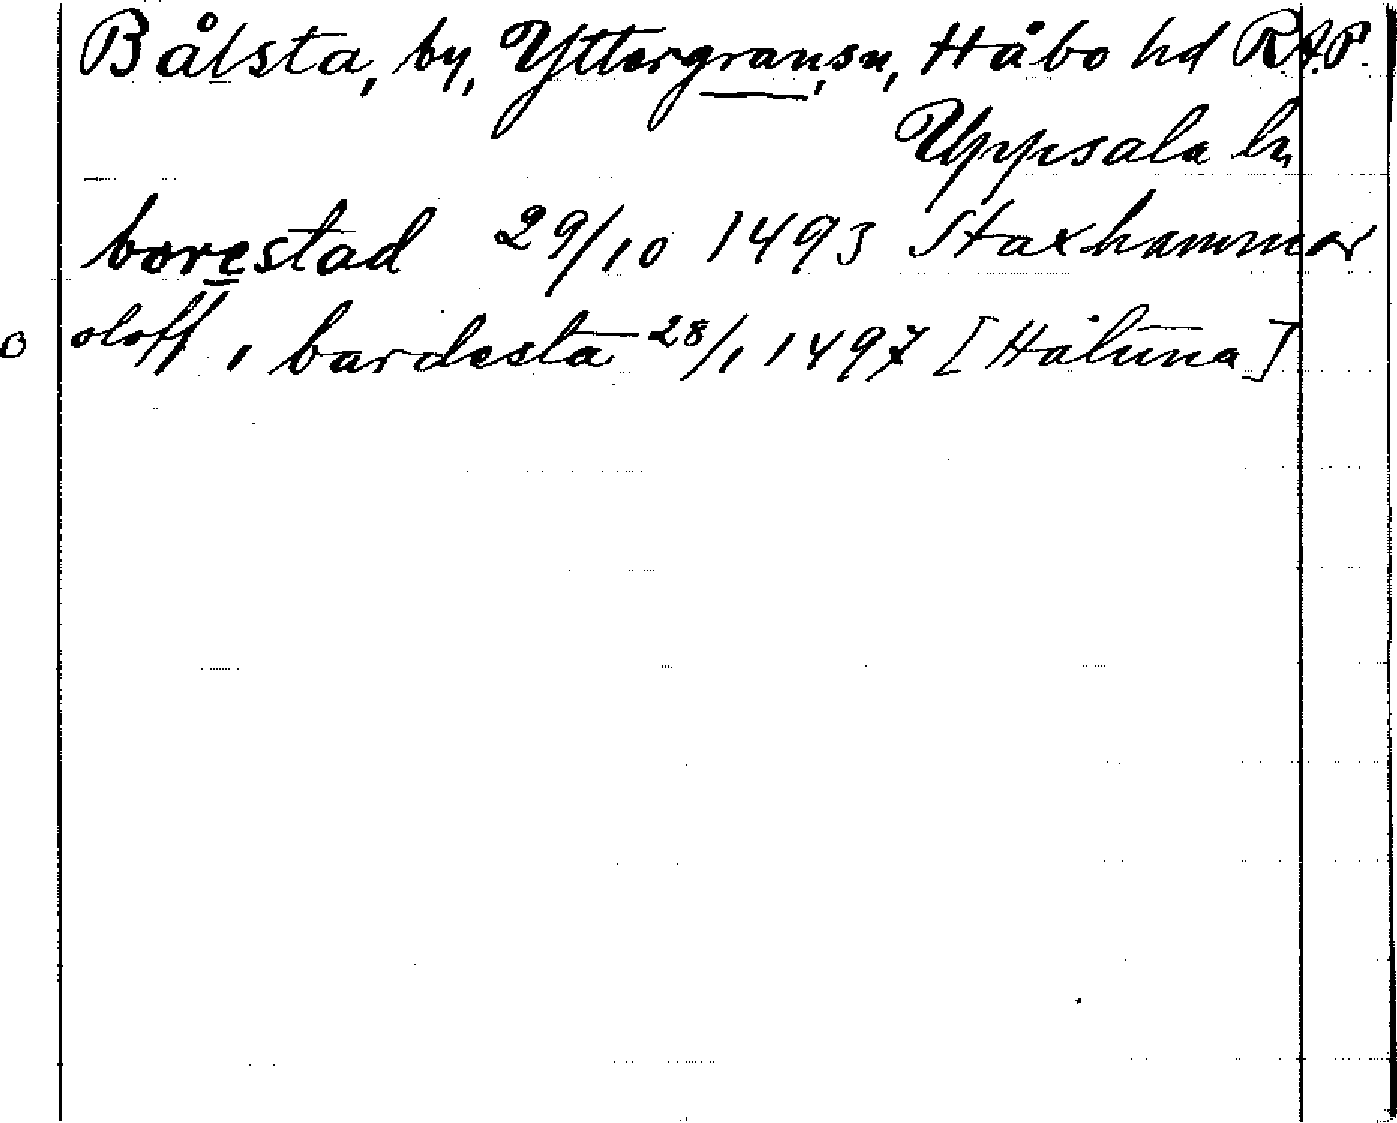 Bålsta, by, Yttergransn, Håbo hd RAP.
Uppsala ln
borestad 29/10 1493 Staxhammar
o oloff, bardesta 28/1 1497 [Håtuna]